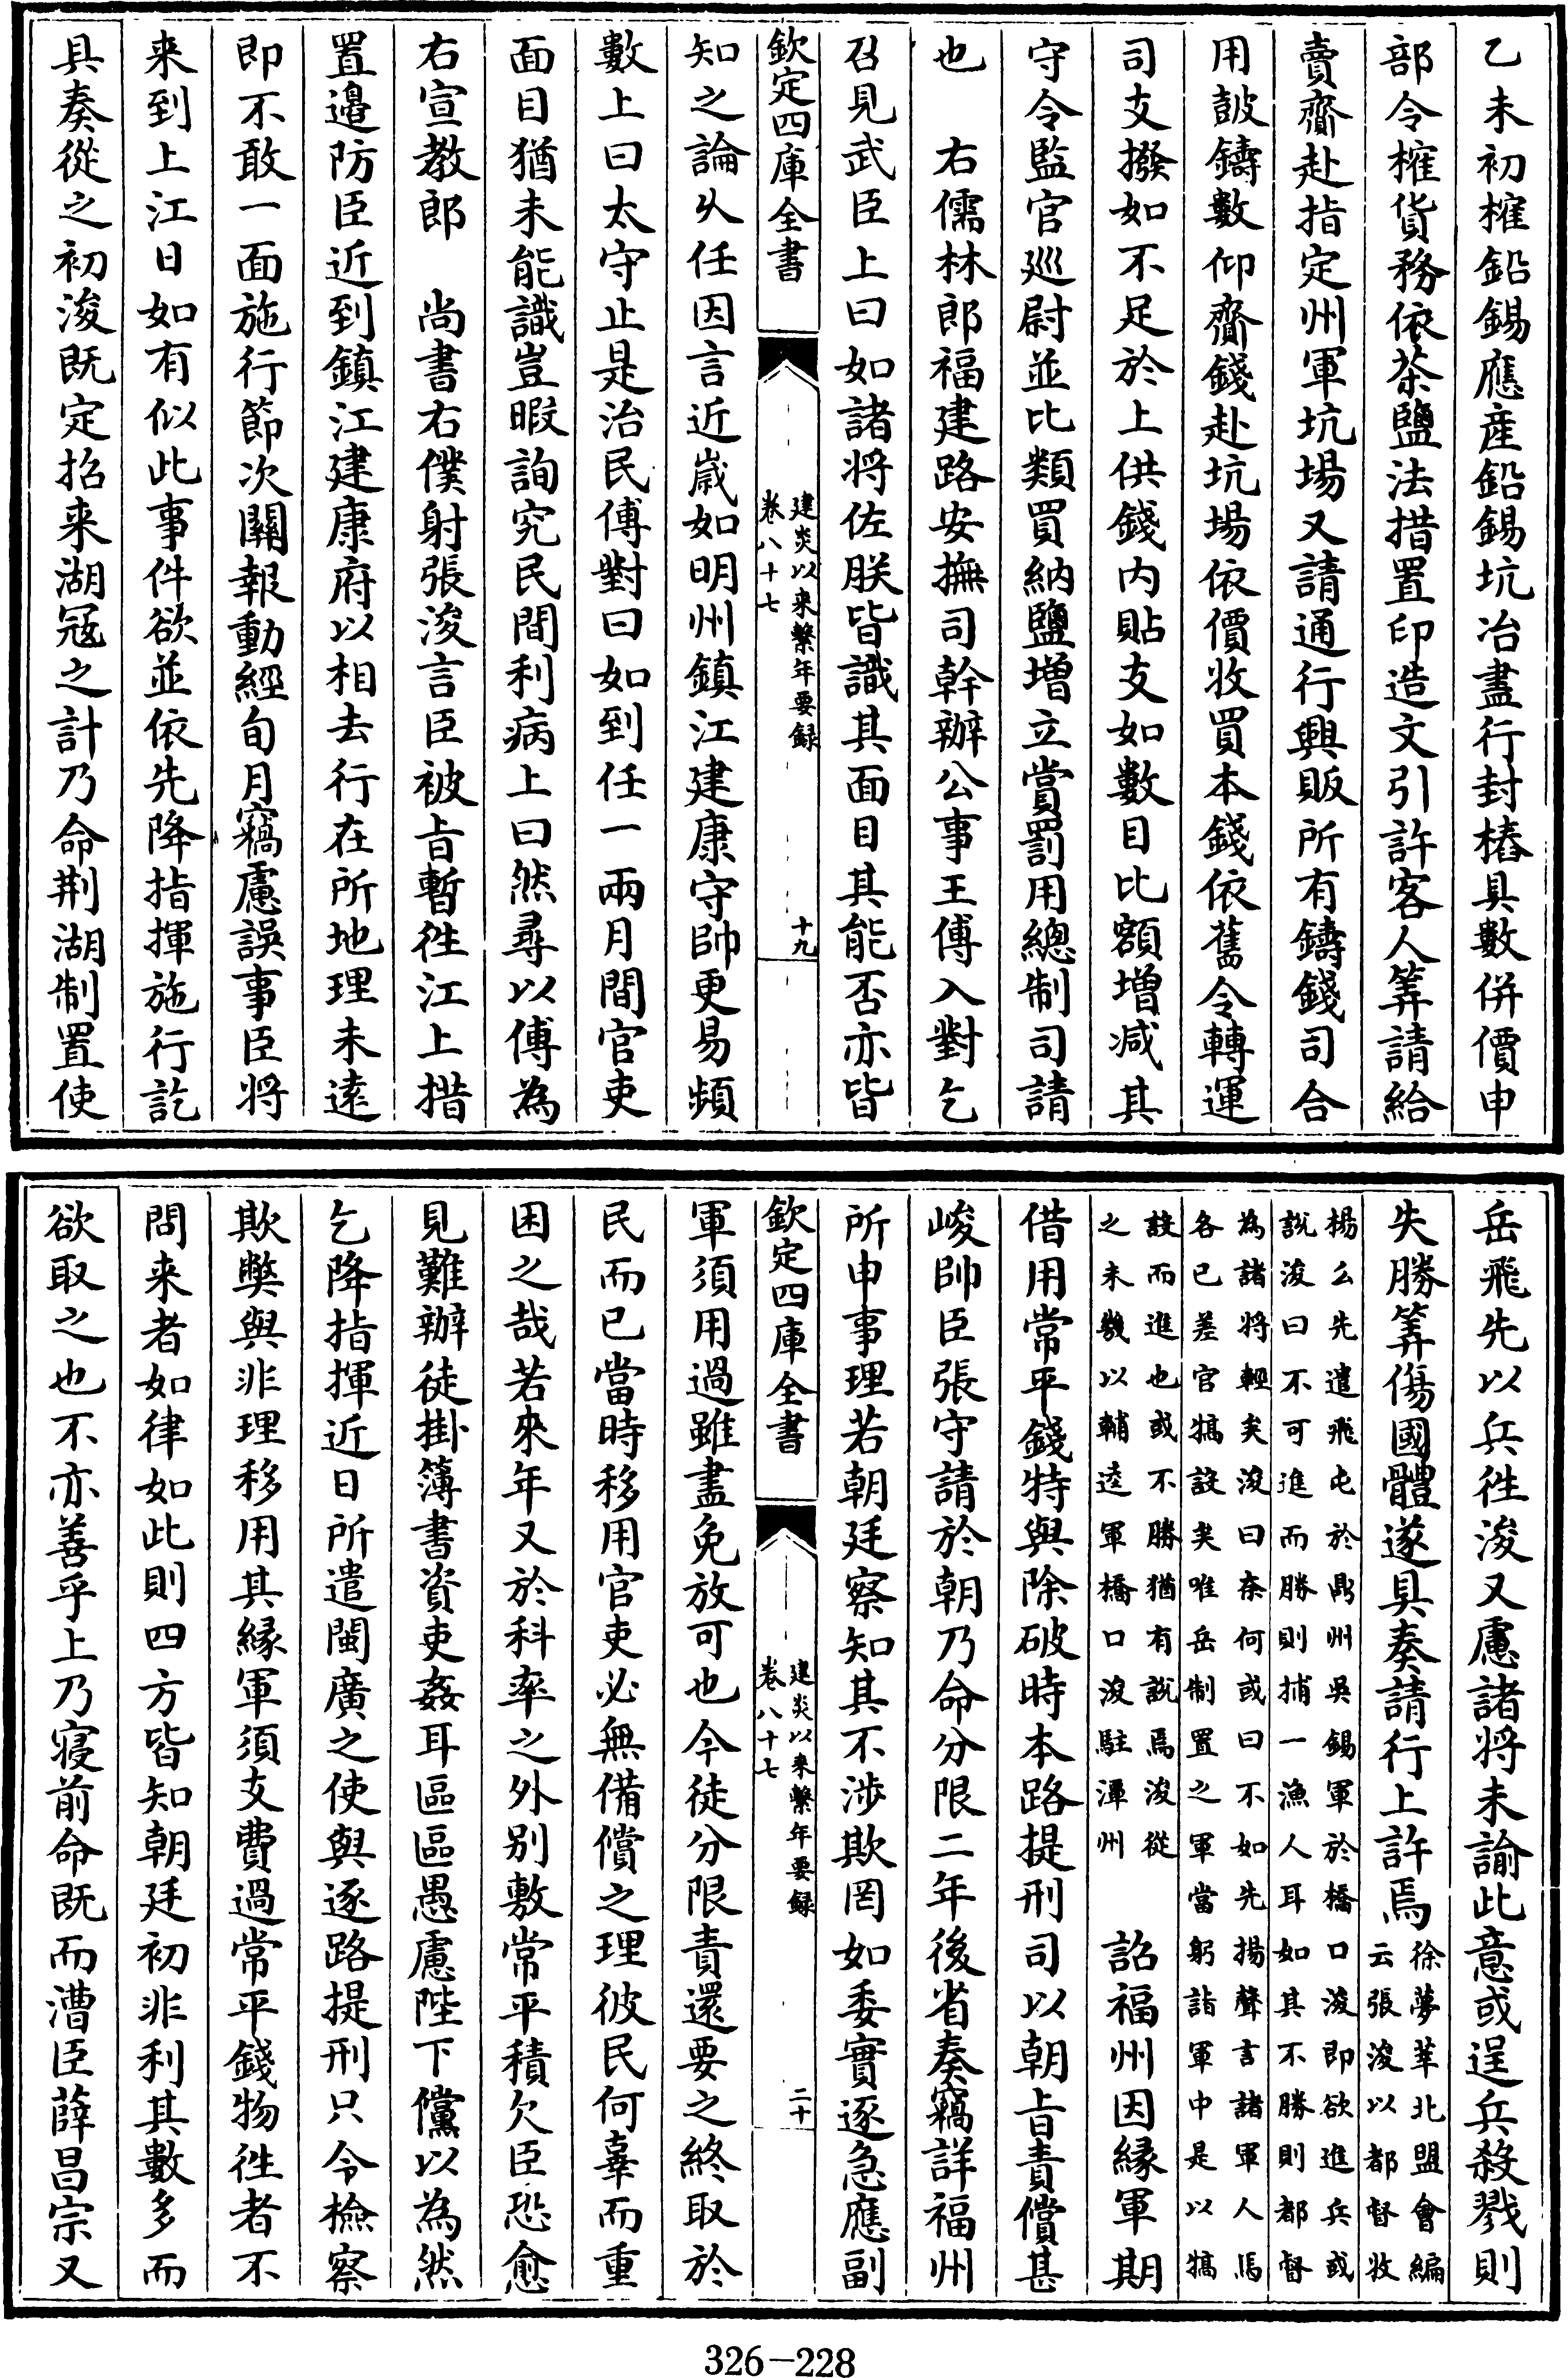 乙未初榷鉛錫應産鉛錫坑冶盡行封樁具數併價申
部令榷貨務依茶鹽法措置印造文引許客人筭請給
賣齎赴指定州軍坑場又請通行興販所有鑄錢司合
用皷鑄數仰齎錢赴坑場依價收買本錢依舊令轉運
司支撥如不足於上供錢内貼支如數目比額增減其
守令監官廵尉並比類買納鹽增立賞罰用總制司請
也　右儒林郎福建路安撫司幹辦公事王傅入對乞
召見武臣上曰如諸將佐朕皆識其面目其能否亦皆
欽定四庫全書
建炎以来繫年要録
卷八十七
十九
知之論乆任因言近嵗如明州鎮江建康守帥更易頻
數上曰太守止是治民傅對曰如到任一兩月間官吏
面目猶未能識豈暇詢究民間利病上曰然尋以傅為
右宣教郎　尚書右僕射張浚言臣被㫖暫徃江上措
置邉防臣近到鎮江建康府以相去行在所地理未逺
即不敢一面施行節次關報動經旬月竊慮誤事臣將
来到上江日如有似此事件欲並依先降指揮施行訖
具奏從之初浚既定招来湖冦之計乃命荆湖制置使
岳飛先以兵徃浚又慮諸將未諭此意或逞兵殺戮則
失勝筭傷國體遂具奏請行上許焉
徐夢莘北盟會編
云張浚以都督收
楊么先遣飛屯於鼎州吳錫軍於橋口浚即欲進兵或
説浚曰不可進而勝則捕一漁人耳如其不勝則都督
為諸將輕矣浚曰奈何或曰不如先揚聲言諸軍人馬
各已差官犒設矣唯岳制置之軍當躬詣軍中是以犒
設而進也或不勝猶有説焉浚從
之未幾以輔逵軍橋口浚駐潭州
詔福州因縁軍期
借用常平錢特與除破時本路提刑司以朝㫖責償甚
峻帥臣張守請於朝乃命分限二年後省奏竊詳福州
所申事理若朝廷察知其不渉欺罔如委實逐急應副
欽定四庫全書
建炎以来繫年要録
卷八十七
二十
軍須用過雖盡免放可也今徒分限責還要之終取於
民而已當時移用官吏必無備償之理彼民何辜而重
困之哉若來年又於科率之外别敷常平積欠臣恐愈
見難辦徒掛簿書資吏姦耳區區愚慮陛下儻以為然
乞降指揮近日所遣閩廣之使與逐路提刑只令檢察
欺弊與非理移用其縁軍須支費過常平錢物徃者不
問来者如律如此則四方皆知朝廷初非利其數多而
欲取之也不亦善乎上乃寝前命既而漕臣薛昌宗又
326-228